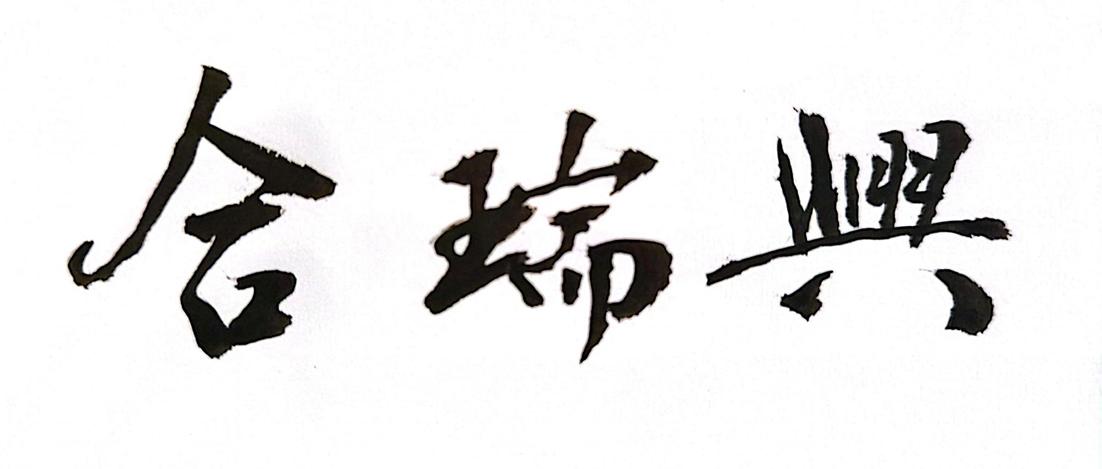 合瑞興